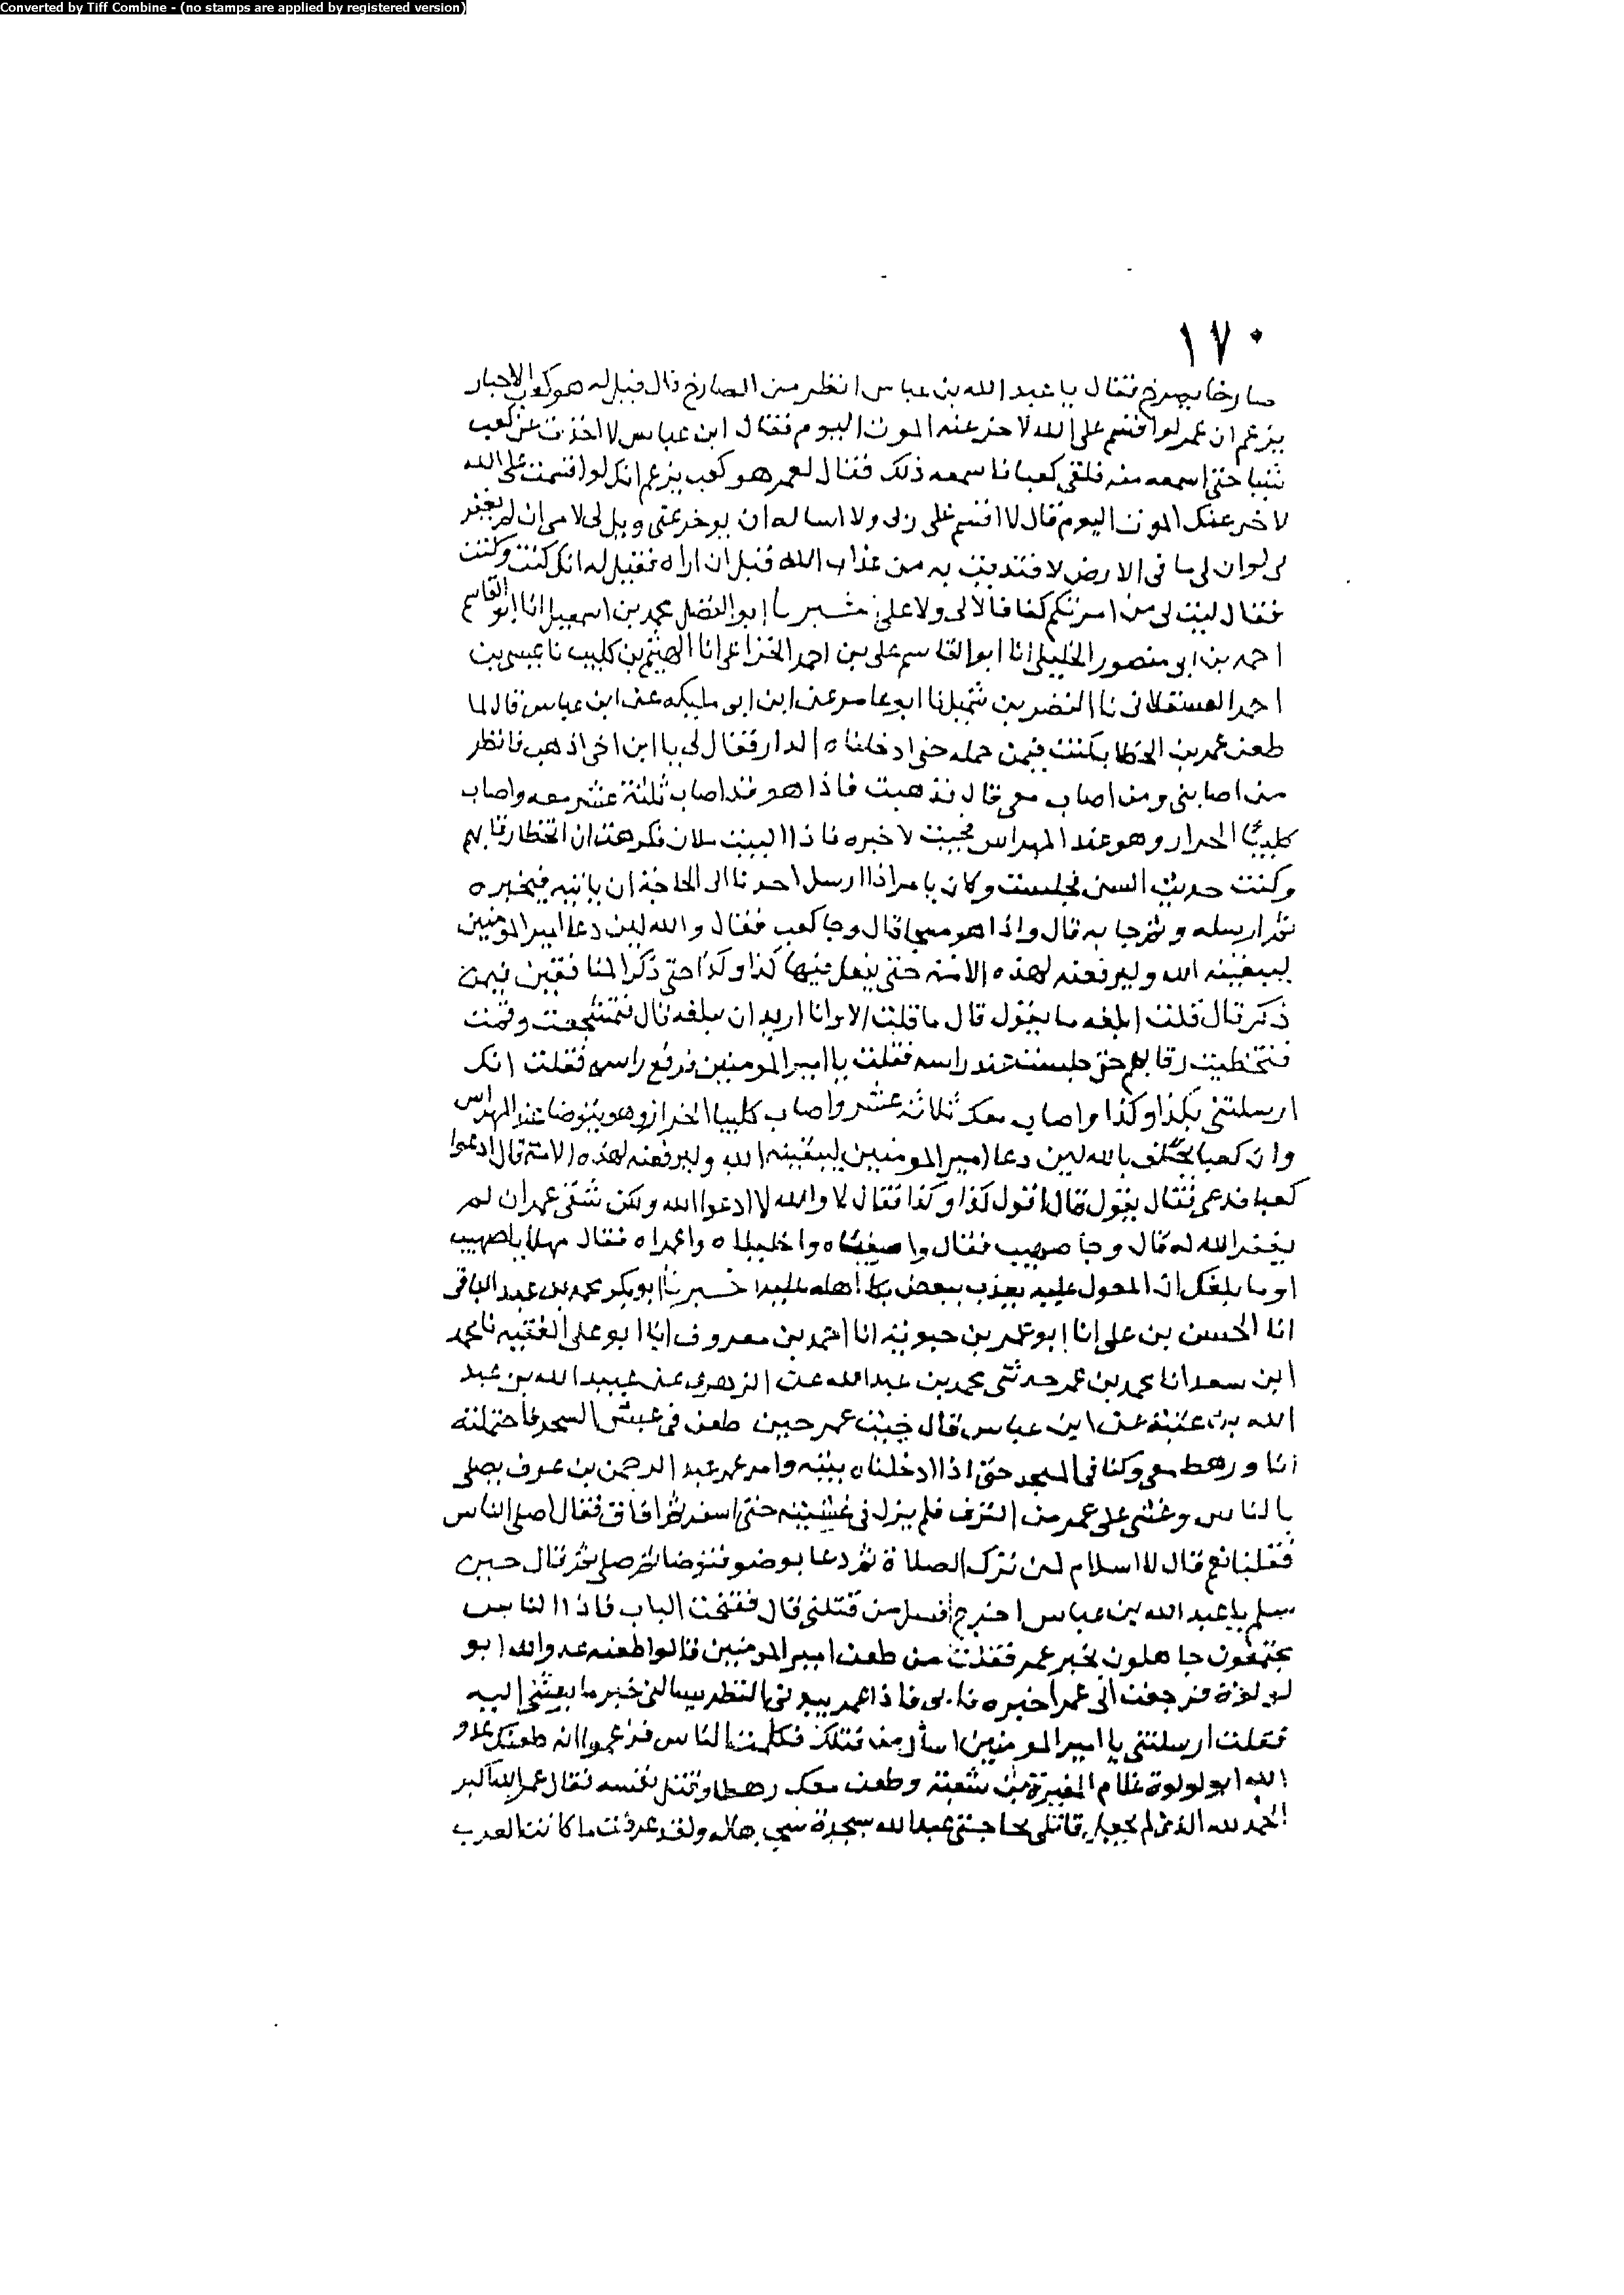 Converted by Tiff Combine - (no stamps are applied by registered version)
١٧٠
صارخا يصرخ فقال يا عبد الله بن عباس انظر من الصارخ قال فقيل له هو كعب الاحبار
يزعم ان عمر لو اقسم على الله لاخر عنه الموت اليوم فقال ابن عباس لا اخذت عن كعب
شيا حتى اسمعه منه فلقى كعبا فاسمعه ذلك فقال لعمر هو كعب يزعم انك لو اقسمت على الله
لاخر عنك الموت اليوم قال لا اقسم على ربى ولا اساله ان يوخر عنى ويل لى ولامى ان لم يغفر
لى لو ان لى ما فى الارض لافتديت به من عذاب الله قبل ان اراه فقيل له انك كنت وكنت
فقال ليت لى من امرتكم كفافا لا لى ولا على اخبرنا ابو الفضل محمد بن اسمعيل انا ابو القاسم
احمد بن ابى منصور الخليلى انا ابو القاسم على بن احمد الخزاعى انا الهيثم بن كليب نا عيسى بن
احمد العسقلانى نا النضر بن شميل نا ابو عامر عن ابن ابى مليكه عن ابن عباس قال لما
طعن عمر بن الخطاب كنت فيمن حمله حتى ادخلناه الدار فقال لى يا ابن اخى اذهب فانظر
من اصابنى ومن اصاب معى قال فذهبت فاذا هو قد اصاب ثلثة عشر معه واصاب
كليبا الخرار وهو عند المهراس فجيت لاخبره فاذا البيت ملان فكرهت ان اتخطا رقابهم
وكنت حديث السن فجلست وكان يامر اذا ارسل احدنا الى الحاجة ان ياتيه فيخبره
ثم ارسله قال واذا هو مسجى قال وجا كعب فقال والله لين دعا امير المومنين
ليبقينه الله وليرفعنه لهذه الامة حتى يفعل فيها كذا وكذا حتى ذكر المنافقين فيمن
ذكر قال قلت ابلغه ما يقول قال ما قلت الا وانا اريد ان تبلغه قال فتشجعت وقمت
فتخطيت رقابهم حتى جلست عند راسه فقلت يا امير المومنين فرفع راسه فقلت انك
ارسلتنى بكذا وكذا واصاب معك ثلاثة عشر واصاب كليبا الخراز وهو يتوضا عند المهراس
وان كعبا يحلف بالله لين دعا امير المومنين ليبقينه الله وليرفعنه لهذه الامة قال ادعوا
كعبا فدعى فقال تقول قال اقول كذا وكذا فقال لا والله لا ادعوا الله ولكن شقى عمر ان لم
يغفر الله له قال وجا صهيب فقال واصفياه واخليلاه واعمراه فقال مهلا يا صهيب
او ما بلغك ان المعول عليه يعذب ببعض بكا اهله عليه اخبرنا ابو بكر محمد بن عبد الباقى
انا الحسن بن على انا ابو عمر بن حيويه انا احمد بن معروف انا ابو على الفقيه نا محمد
ابن سعد انا محمد بن عمر حدثنى محمد بن عبد الله عن الزهرى عن عبيد الله بن عبد
الله بن عتبة عن ابن عباس قال جيت عمر حين طعن فى غبش السحر فاحتملته
انا ورهط معى وكنا فى المسجد حتى اذا ادخلناه بيته وامر عمر عبد الرحمن بن عوف يصلى
بالناس وغشى على عمر من النزف فلم يزل فى غشيته حتى اسفر ثم افاق فقال اصلى الناس
فقلنا نعم قال لا اسلام لمن ترك الصلاة ثم دعا بوضو فتوضا ثم صلى ثم قال حين
سلم يا عبد الله بن عباس اخرج فسل من قتلنى قال ففتحت الباب فاذا الناس
مجتمعون جاهلون بخبر عمر فقلت من طعن امير المومنين فقالوا طعنه عدو الله ابو
لولوة فرجعت الى عمر اخبره فاذا عمر يبد فى النظر يسالنى خبر ما بعثنى اليه
فقلت ارسلتنى يا امير المومنين اسال من قتلك فكلمت الناس فزعموا انه طعنك عدو
الله ابو لولوة غلام المغيرة بن شعبة وطعن معك رهطا وقتل نفسه فقال عمر الله اكبر
الحمد لله الذى لم يجعل قاتلى يحاجنى عند الله بسجدة سجدها له ولقد عرفت ما كانت العرب